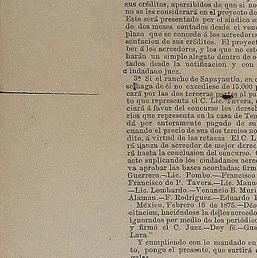 sus créditos, apercibidos de que si no
no se les considerará en el proyecto de
Este será presentado por el síndico e
de dos meses contados desde el venc
plazo que se concede á los acreedores
sentacion de sus créditos. El proyect
ber á los acreedores, y los que no est
harán un simple alegato dentro de o
tados desde la notificacion y con
ciudadano juez.
3ª Si el rancho de Sapayautla, en
de no excediese de 15,000 p
cará por las dos terceras partes al pa
to que representa el C. Lic. Tavera,
ciará á favor del concurso los derech
rios que representa en la casa de Ten
dá por enteramente pagado de su
cuando el precio de sus dos tercios no
dito, á virtud de las retazas. El C. L
rá fianza de acreedor de mejor derec
rá hasta la conclusion del concurso.
ncto suplicando los ciudadanos acree
va aprobar las bases acordadas, firm
Guerrero.—Lic. Pombo.—Francisco
Francisco de P. Tavera.—Lic. Manu
—Lic. Lombardo.—Venancio B. Muri
Alaman.—F. Rodriguez.—Eduardo
México, Febrero 16 de 1875.—Dés
citacion, haciéndose la de los acreedore
ignorados por medio de los periódico
y firmó el C. Juez.—Doy fé.—Gue
Lara."
Y cumpliendo con lo mandado en
to, pongo el presente, que surtirá